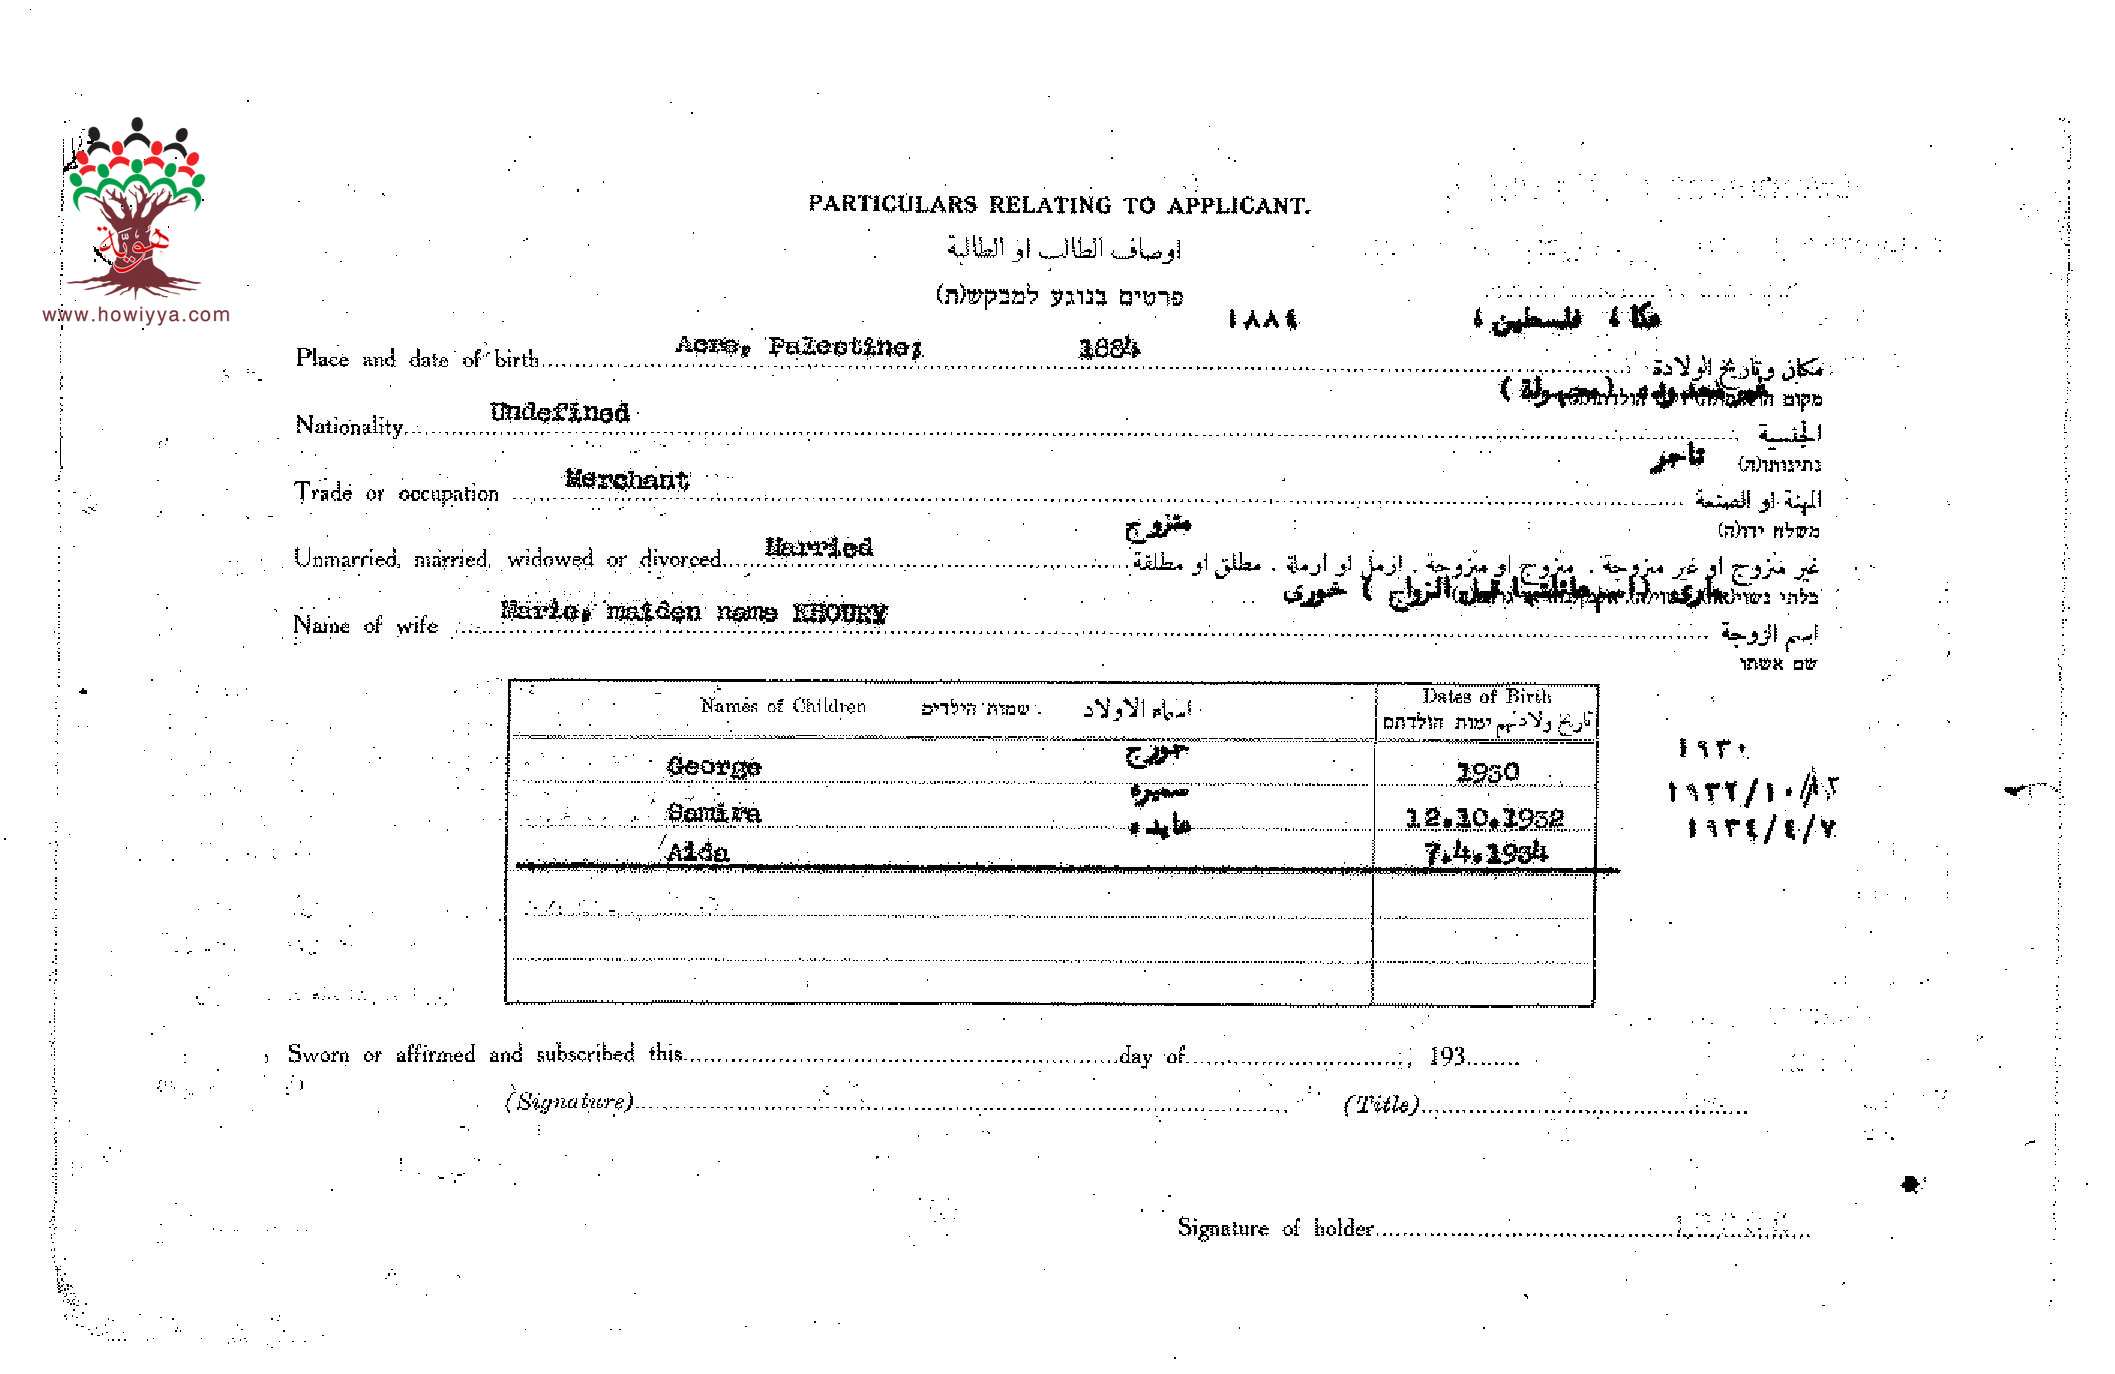 هوية
www.howiyya.com
PARTICULARS RELATING TO APPLICANT.
اوصاف الطالب او الطالبة
פרטים בנוגע למבקש(ת)
١٨٨٤ عكا ، فلسطين ،
Place and date of birth Acre, Palestine; 1884 مكان وتاريخ الولادة
(مجهولة) מקום
Nationality Undefined الجنسية
تاجر נתינותו(ה)
Trade or occupation Merchant المهنة او الصنعة
متزوج משלח ידו(ה)
Unmarried, married, widowed or divorced Married غير متزوج او غير متزوجة . متزوج او متزوجة . ارمل او ارملة . مطلق او مطلقة
ماري (اسم عائلتها قبل الزواج) خوري
Name of wife Marie, maiden name KHOURY اسم الزوجة
שם אשתו
Names of Children שמות הילדים اسماء الاولاد Dates of Birth
ימות הולדתם تاريخ ولادتهم
George جورج 1930 ١٩٣٠
Samira سميره 12.10.1932 ١٩٣٢/١٠/١٢
Aida عايده 7.4.1934 ١٩٣٤/٤/٧
Sworn or affirmed and subscribed this day of , 193
(Signature) (Title)
Signature of holder